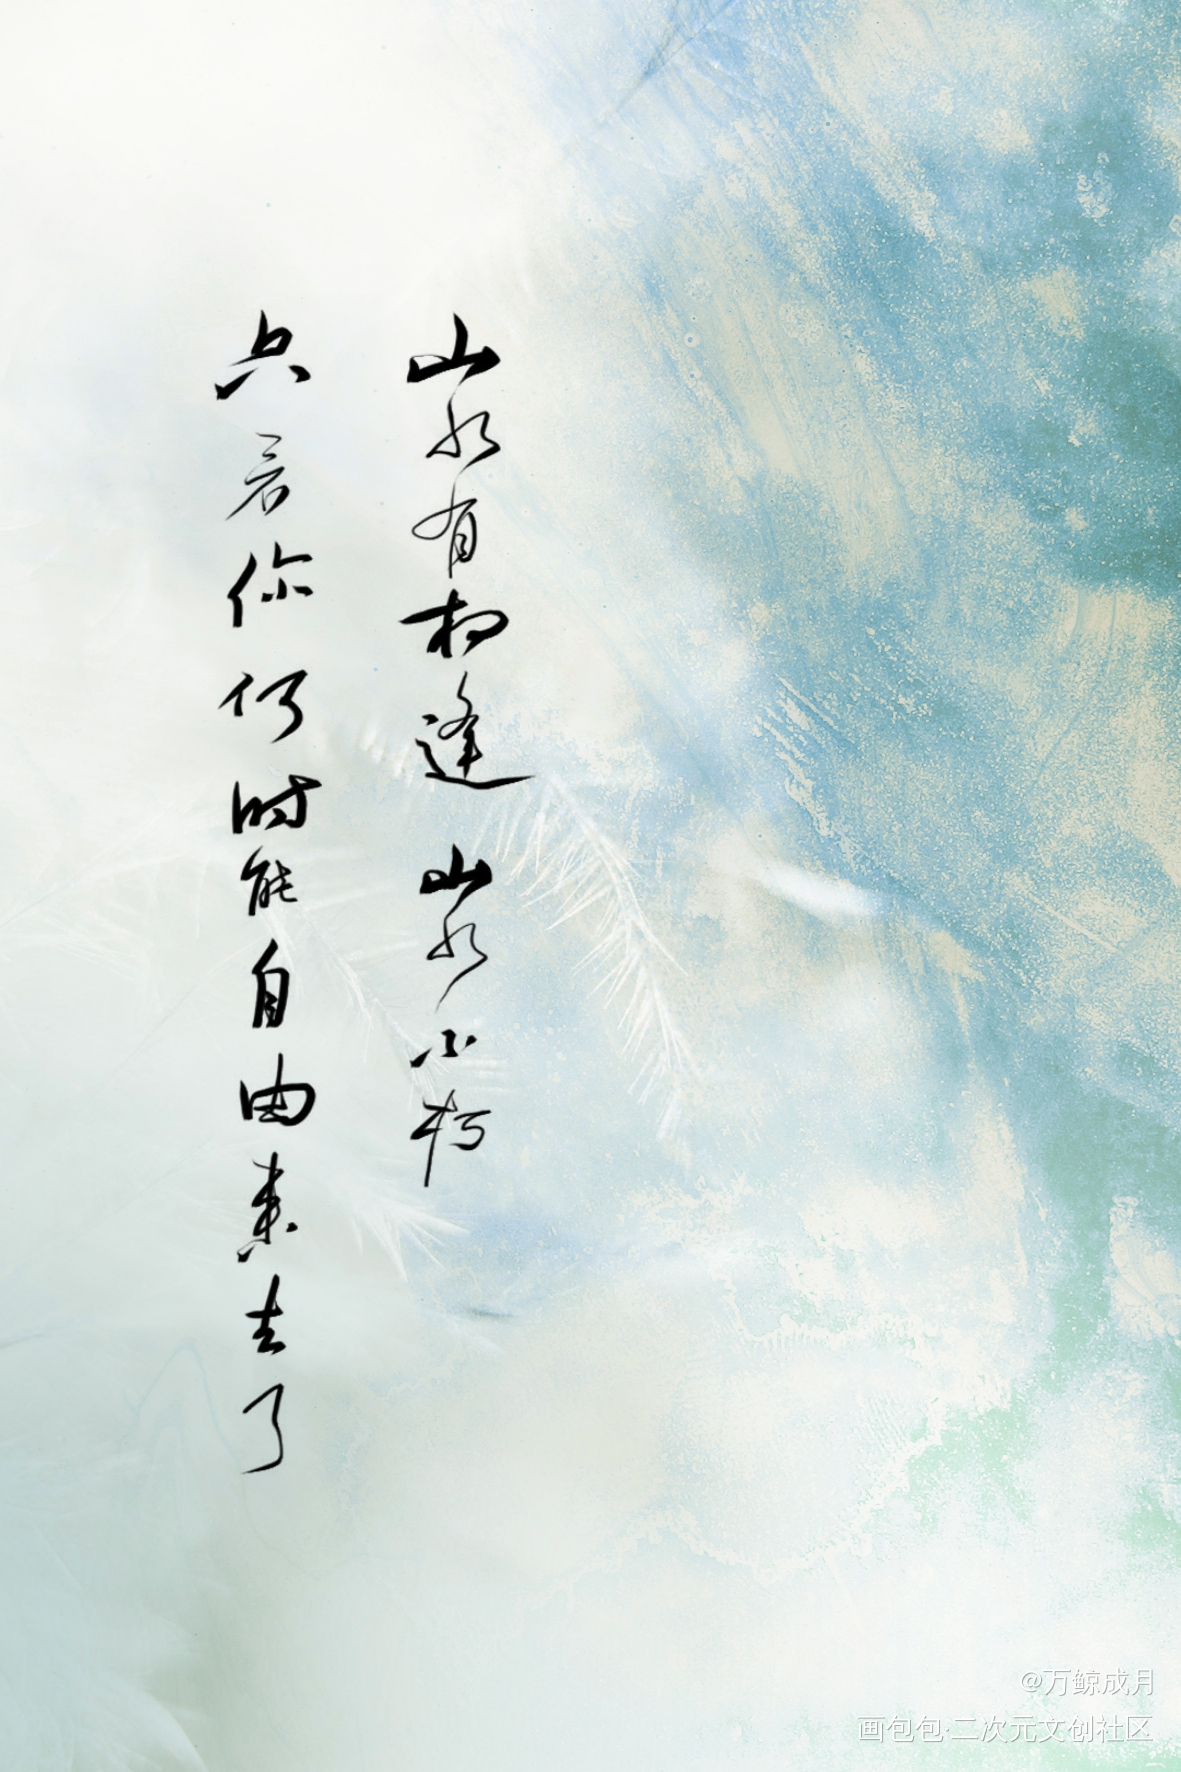 山水有相逢 山水小朽
只看你何时能自由来去了
@万鲸成月
画包包·二次元文创社区